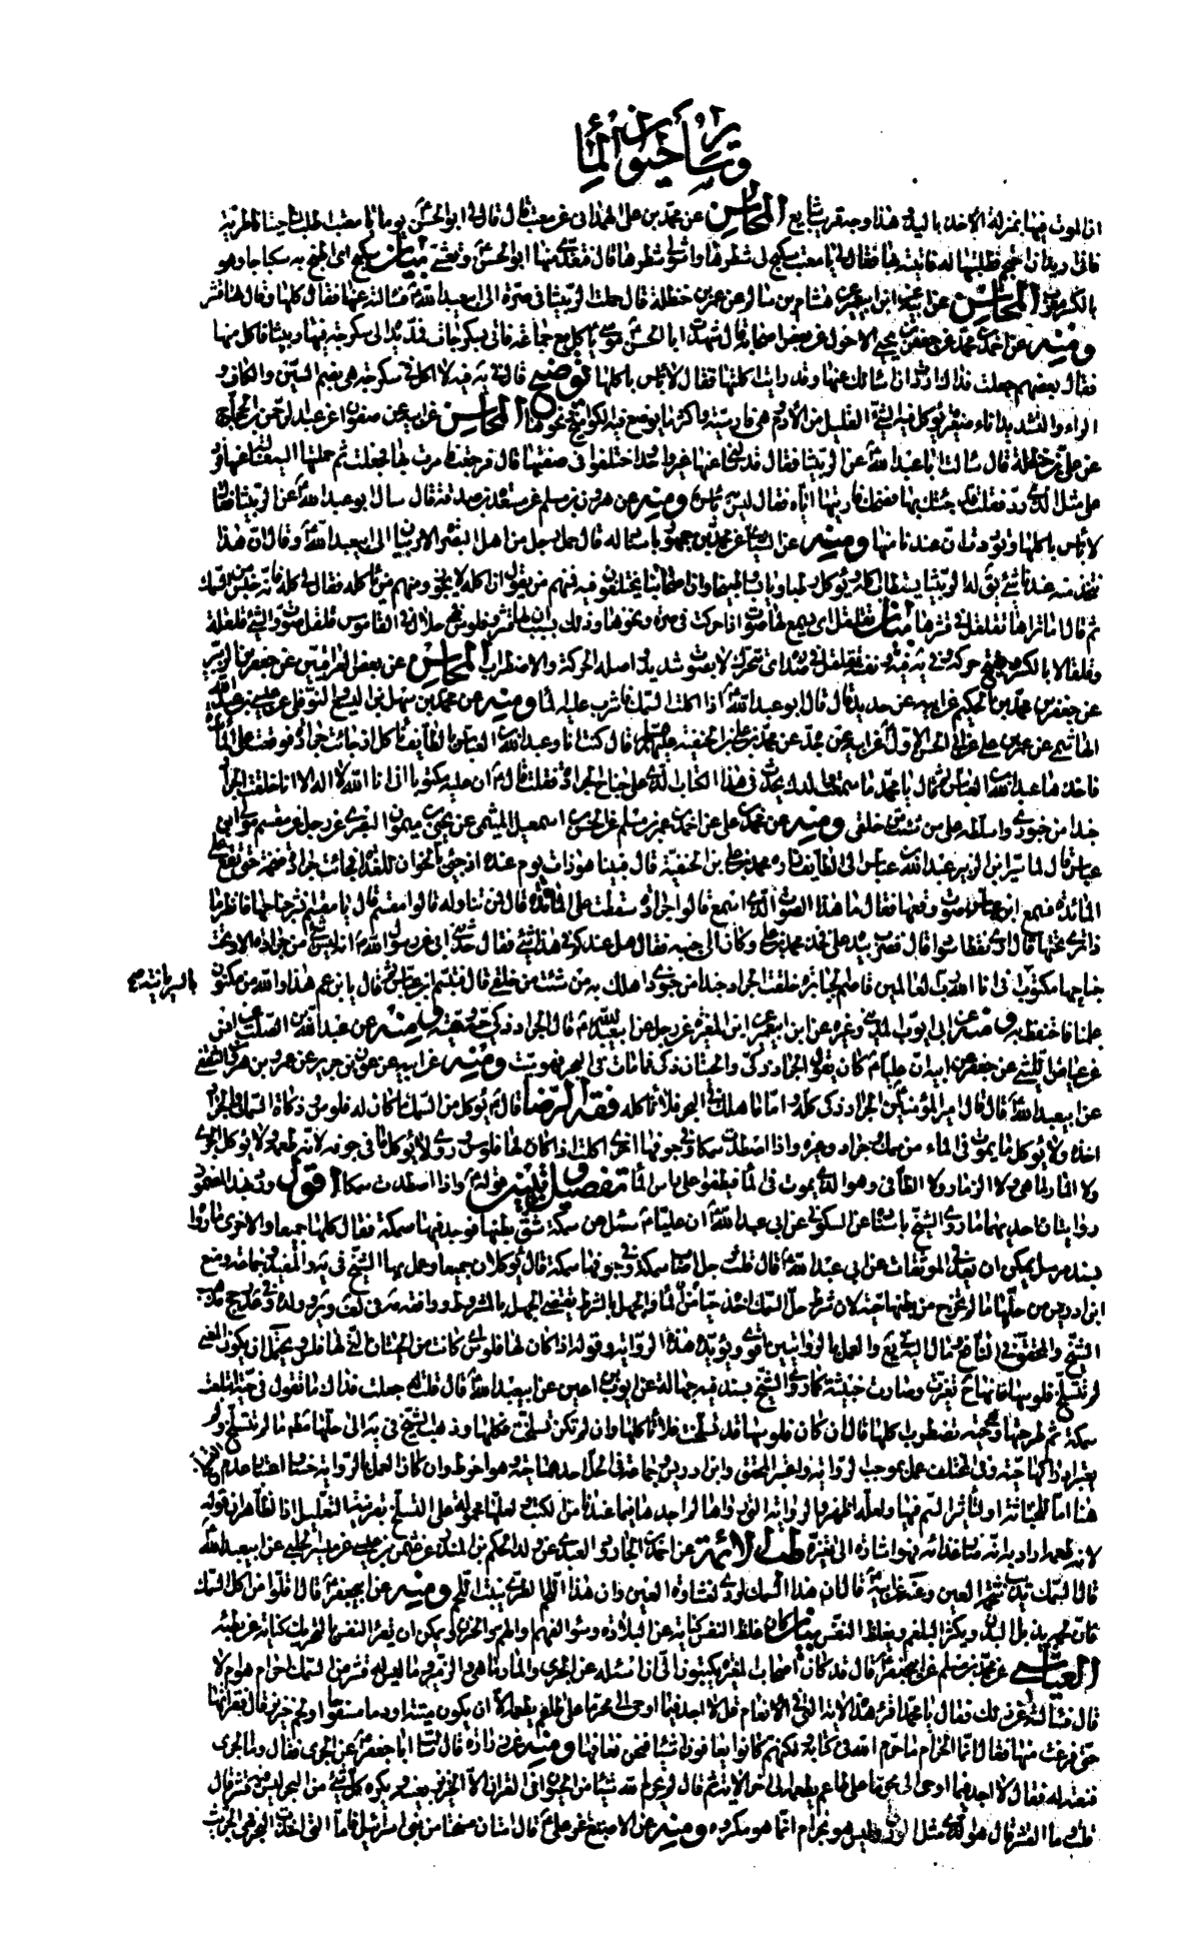 وسائر حيوان الماء
ان الموت فيها بمنزلة الاخذ باليد هذا وجه قريب شايع المحاسن عن محمد بن علي الهمداني عن معتب قال قال لي ابو الحسن ع يوما يا معتب اطلب لنا حيتانا طرية
فاني اريد ان احتجم فطلبتها له فاتيته بها فقال لي يا معتب سكبج لي شطرها واشو لي شطرها قال فتغدى منها ابو الحسن ع وتعشى بيان سكبج اى اطبخ به سكباجا وهو
بالكسر معرب المحاسن عن ابيه عن ابن ابي عمير عن هشام بن سالم عن عمر بن حنظلة قال حملت الربيثا في صرة الى ابي عبد الله ع فسالته عنها فقال كلها وقال لها قشر
ومنه عن احمد بن محمد عن جعفر بن يحيى الاحول عن بعض اصحابه قال شهدت ابا الحسن موسى ع ياكل مع جماعة فاتي بسكرجات فمد يده الى سكرجة فيها ربيثا فاكل منها
فقال بعضهم جعلت فداك اردت ان اسالك عنها وقد رايتك اكلتها فقال لا باس باكلها توضيح قال في يه فيه لا اكل في سكرجة هي بضم السين والكاف و
الراء والتشديد اناء صغير يوكل فيه الشيء القليل من الادم هي فارسية واكثر ما يوضع فيه الكواميخ ونحوها المحاسن عن ابيه عن صفوان عن عبد الرحمن بن الحجاج
عن علي بن حنظلة قال سالت ابا عبد الله ع عن الربيثا فقال قد سالني عنها غير واحد واختلفوا في صفتها قال فرجعت فامرت بها فجعلت ثم حملتها اليه فسالته عنها فرد
علي مثل الذي رد فقلت قد جئتك بها فضحك فاريتها اياه فقال ليس به باس ومنه عن هرون بن مسلم عن مسعدة بن صدقة قال سال ابو عبد الله ع عن الربيثا فقال
لا باس باكلها ولوددت ان عندنا منها ومنه عن السياري عن محمد بن جمهور باسناده قال حمل رجل من اهل البصرة الاربيان الى ابي عبد الله ع وقال ان هذا
يتخذ منه عندنا شيء يق له الربيثا يستطاب اكله ويوكل رطبا ويابسا وطبيخا وان اصحابنا يختلفون فيه فمنهم من يقول ان اكله لا يجوز ومنهم من ياكله فقال لي كله فانه جنس من السمك
ثم قال اما تراها تقلقل في قشرها بيان تقلقل اى يسمع لها صوت اذا حركت في صرة ونحوها وذلك بسبب ان لها قشر وفلوس فهي حلال في القاموس قلقل صوت والشيء قلقلة
وقلقالا بالكسر ويفتح حركه وفي يه فيه ونفسه تقلقل في صدره اى تتحرك لا بصوت شديد واصله الحركة والاضطراب المحاسن عن بعض العراقيين عن جعفر بن الزبير
عن جعفر بن محمد بن حكيم عن ابيه عن حديد قال قال ابو عبد الله ع اذا اكلت السمك فاشرب عليه الماء ومنه عن محمد بن سهل بن اليسع النوفلي عن عيسى بن عبد الله
الهاشمي عن عمر بن علي عن ابي الحسن الاول ع عن ابيه عن جده عن محمد بن علي بن الحنفية قال كنت انا وعبد الله بن العباس بالطايف ناكل اذ جائت جرادة فوقعت على المائدة
فاخذها عبد الله بن العباس ثم قال يا محمد ما سمعت والدك يحدث في هذا الكتاب الذي على جناح الجرادة فقلت قال ع ان عليه مكتوبا اني انا الله لا اله الا انا خلقت الجراد
جندا من جنودى واسلطه على من شئت من خلقي ومنه عن محمد بن علي عن احمد بن عمر بن مسلم عن الحسن بن اسمعيل الميثمي عن يحيى بن ميمون البصرى عن رجل عن مقسم مولى ابن
عباس قال لما سير ابن الزبير عبد الله بن عباس الى الطايف زاره محمد بن علي بن الحنفية قال فبينا هو ذات يوم عنده اذ جيء بالخوان للغداء فجائت جرادة ضخمة حتى تقع على
المائدة فسمع ابن عباس صوت وقعها فقال ما هذا الصوت الذى اسمع قالوا جرادة سقطت على المائدة قال فمن تناوله قالوا مقسم قال يا مقسم نشر جناحها فانظر ما
ذا ترى تحتها قال ارى نقطا سوداء قال فضرب بيده على فخذ محمد بن علي وكان الى جنبه فقال هل عندكم في هذا شيء فقال حدثني ابي عن رسول الله ص انه ليس من جرادة الا وتحت
جناحها مكتوب اني انا الله رب العالمين قاصم الجبابرة خلقت الجراد جندا من جنودي اهلك به من شئت من خلقي قال فتبسم ابن عباس ثم قال يا بن عم هذا والله من مكنون بالسريانية
علمنا فاحتفظ به ومنه عن ابي ايوب المديني وغيره عن ابن ابي عمير عن ابن المغيرة عن رجل عن ابي عبد الله ع قال الجراد ذكي حيه وميته ومنه عن عبد الله بن الصلت عن انس
بن عياض الليثي عن جعفر عن ابيه ان عليا ع كان يقول الجراد ذكى والحيتان ذكى فما مات في البحر فهو ميت ومنه عن ابيه عن عون بن جرير عن عمرو بن هرون الثقفي
عن ابي عبد الله ع قال قال امير المؤمنين الجراد ذكى كله واما ما هلك في البحر فلا تاكله فقه الرضا قال ع يوكل من السمك ما كان له فلوس وذكاة السمك والجراد
اخذه ولا يوكل ما يموت في الماء من سمك وجراد وغيره واذا اصطدت سمكا وفي جوفها اخرى اكلت اذا كان لها فلوس وروى لا يوكل ما في جوفه لانه طعمه ولا يوكل الجرى
ولا المارماهي ولا الزمار ولا الطافي وهو الذى يموت في الماء فيطفو على راس الماء تفصيل وتبيين قوله ع واذا اصطدت سمكا اقول وردت بهذا المضمون
روايتان احديهما ما رواه الشيخ باسناده عن السكوني عن ابي عبد الله ع ان عليا ع سئل عن سمكة شق بطنها فوجد فيها سمكة فقال كلهما جميعا والاخرى ما رواه
بسند مرسل يمكن ان يعد في الموثقات عن ابي عبد الله ع قال قلت رجل اصاب سمكة وفي جوفها سمكة قال يوكلان جميعا وعمل بها الشيخ في يه والمفيد وجماعة ومنع
ابن ادريس من حلها ما لم تخرج من بطنها حية لان شرط حل السمك اخذه حيا من الماء والجهل بالشرط يقتضي الجهل بالمشروط ووافقه في كشف وولده في شرح
الشيخ والمحقق في النافع ومال اليه في يع والعمل بالروايتين اقوى ويؤيده هذه الرواية وقوله اذا كان لها فلوس اى كانت من الحيتان التي لها فلس ويحتمل ان يكون المعنى
لم تتسلخ فلوسها فانها ح تغيرت وصارت خبيثة كما روى الشيخ بسند فيه جهالة عن ايوب بن اعين عن ابي عبد الله ع قال قلت له جعلت فداك ما تقول في حية ابتلعت
سمكة ثم طرحتها وهي حية تضطرب اكلها قال ان كان فلوسها قد تسلخت فلا تاكلها وان لم تكن تسلخت فكلها وذهب الشيخ في يه الى حلها مطلقا ما لم تتسلخ ولم
يعتبر ادراكها حية وفي المختلف عمل بموجب الرواية واعتبر المحقق وابن ادريس وجماعة في الحل اخذها حية وهو احوط وان كان العمل بالرواية حسنا
هنا اما لخباثته او لتاثير السم فيها ولعله اظهر والرواية التي رواها لم اجدها فيما عندنا من الكتب ولعلها محمولة على التسلخ بقرينة التعليل اذ الظاهر ان قوله
لانه طعمه اراد به انه صار غذائه فهو اشارة الى تغيره طب الائمة عن احمد بن الجارود العبدي عن ولد الحكم بن المنذر عن عثمن بن عيسى عن ميسر الحلبي عن ابي عبد الله
قال السمك يذيب شحمة العين وعنه عن ابيه ع قال ان هذا السمك لردى لغشاوة العين وان هذا اللحم الطرى ينبت اللحم ومنه عن ابي جعفر ع قال اقلوا من اكل السمك
فان لحمه يذبل البدن ويكثر البلغم ويغلظ النفس بيان كان غلظ النفس كناية عن البلادة وسوء الفهم والهم والحزن ويمكن ان يقرء النفس بالتحريك كناية عن بطئه
العياشي عن محمد بن مسلم عن ابي جعفر ع قال قد كان اصحاب المغيرة يكتبون الى ان اسئله عن الجرى والمارماهي والزمير وما ليس له قشر من السمك احرام هو ام لا
قال فسالته عن ذلك فقال يا محمد اقرء هذه الاية التي في الانعام قل لا اجد فيما اوحي الي محرما على طاعم يطعمه الا ان يكون ميتة او دما مسفوحا او لحم خنزير قال فقراتها
حتى فرغت منها فقال انما الحرام ما حرم الله في كتابه ولكنهم كانوا يعافون اشياء فنحن نعافها ومنه عن زرارة قال سالت ابا جعفر ع عن الجرى فقال وما الجرى
فنعته له فقال لا اجد فيما اوحي الي محرما على طاعم يطعمه الى اخر الاية ثم قال لم يحرم الله شيئا من الحيوان في القران الا الخنزير بعينه ويكره كل شيء من البحر ليس فيه قشر قال
قلت وما القشر قال هو الذى مثل الورق وليس هو بحرام انما هو مكروه ومنه عن الاصبغ عن علي ع قال امتان مسختا من بني اسرائيل فاما التي اخذت البحر فهي الجريث